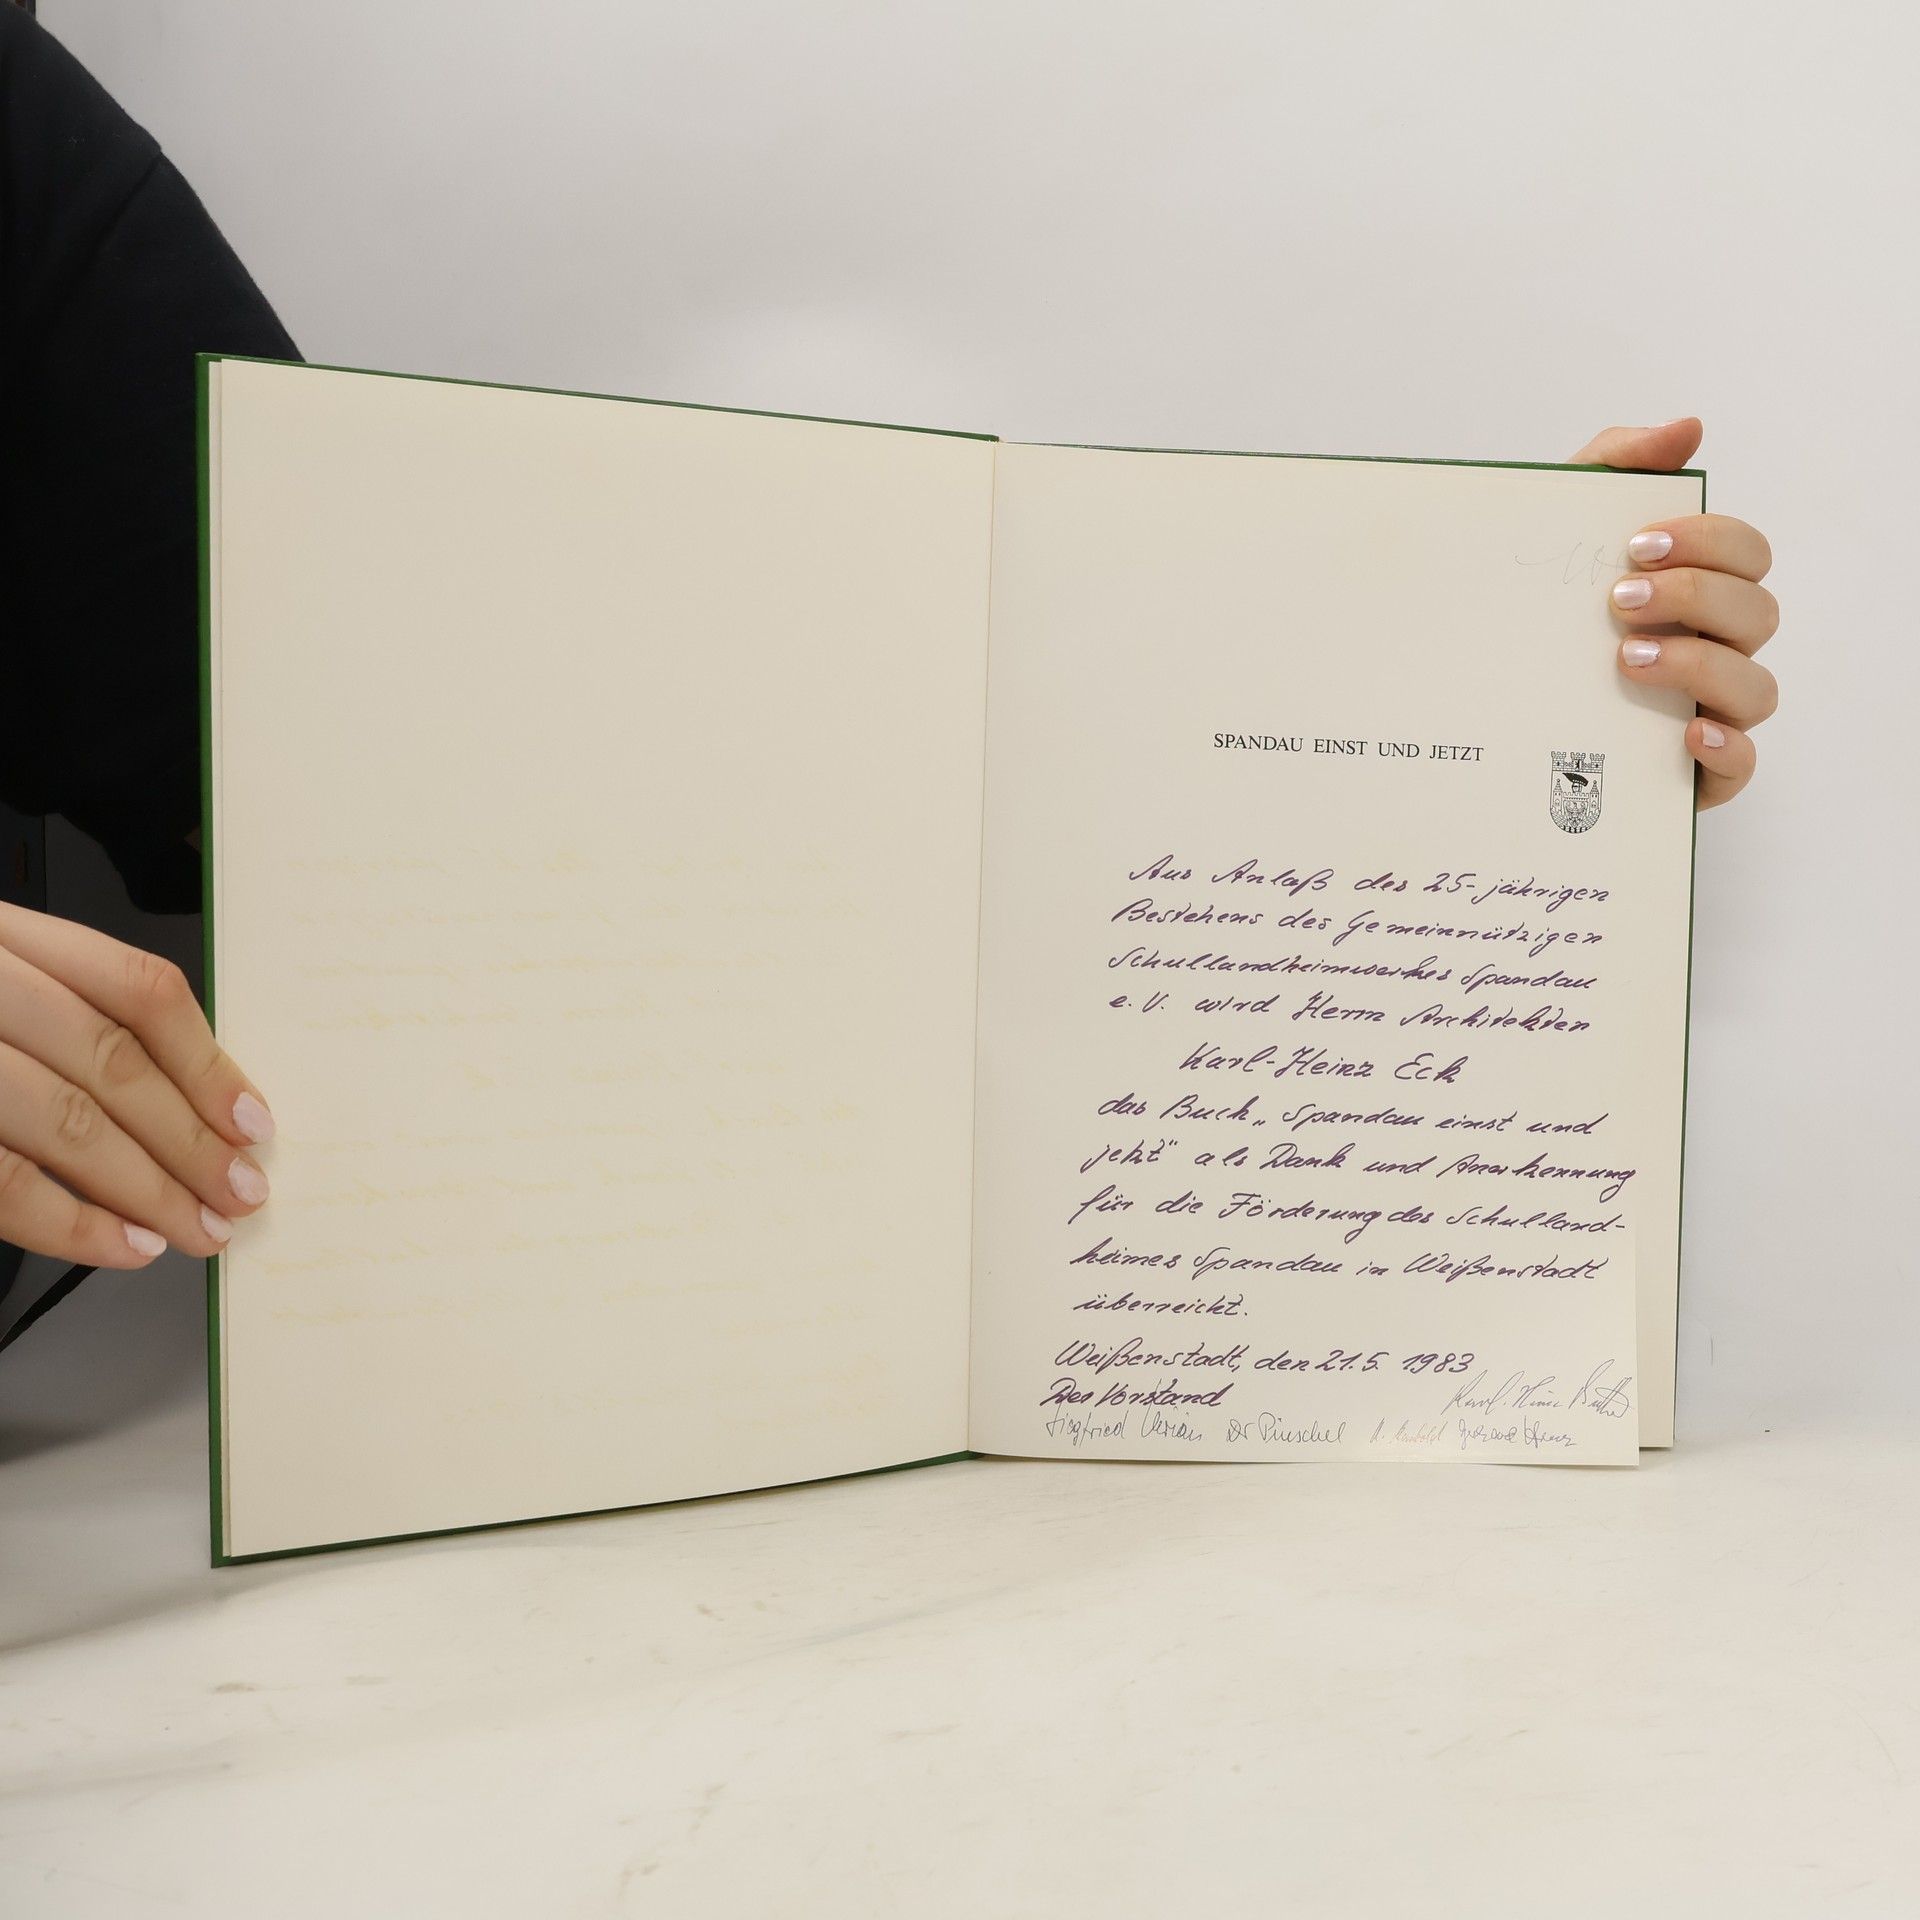 SPANDAU EINST UND JETZT
Aus Anlaß des 25-jährigen
Bestehens des Gemeinnützigen
Schullandheimwerkes Spandau
e.V. wird Herrn Architekten
Karl-Heinz Eck
das Buch „Spandau einst und
jetzt" als Dank und Anerkennung
für die Förderung des Schulland-
heimes Spandau in Weißenstadt
überreicht.
Weißenstadt, den 21.5. 1983
Der Vorstand
Siegfried Dr Pinschel